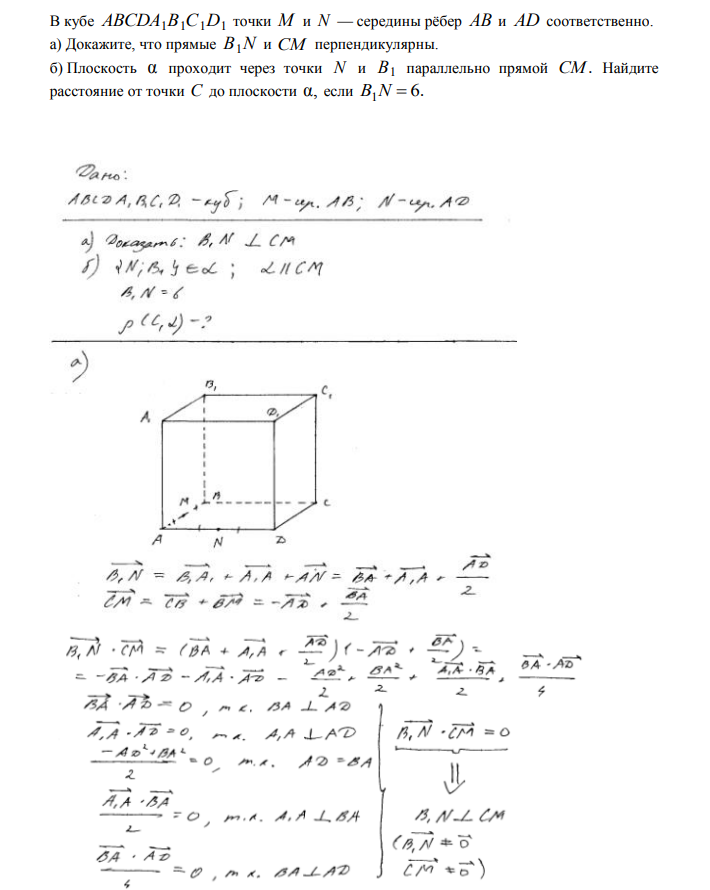 В кубе ABCDA₁B₁C₁D₁ точки M и N — середины рёбер AB и AD соответственно.
а) Докажите, что прямые B₁N и CM перпендикулярны.
б) Плоскость α проходит через точки N и B₁ параллельно прямой CM. Найдите
расстояние от точки C до плоскости α, если B₁N = 6.
Дано:
ABCDA₁B₁C₁D₁ – куб; M – сер. AB; N – сер. AD
а) Доказать: B₁N ⊥ CM
б) {N; B₁} ∈ α ; α || CM
B₁N = 6
ρ(C, α) – ?
а)
B₁ C₁
A₁ D₁
M B C
A N D
B₁N = B₁A₁ + A₁A + AN = BA + A₁A + AD/2
CM = CB + BM = -AD + BA/2
B₁N · CM = (BA + A₁A + AD/2)(-AD + BA/2) =
= -BA · AD - A₁A · AD - AD²/2 + BA²/2 + A₁A · BA/2 + BA · AD/4
BA · AD = 0, т.к. BA ⊥ AD
A₁A · AD = 0, т.к. A₁A ⊥ AD
B₁N · CM = 0
(-AD² + BA²)/2 = 0, т.к. AD = BA
⇓
A₁A · BA/2 = 0, т.к. A₁A ⊥ BA
B₁N ⊥ CM
(B₁N ≠ 0
CM ≠ 0)
BA · AD/4 = 0, т.к. BA ⊥ AD